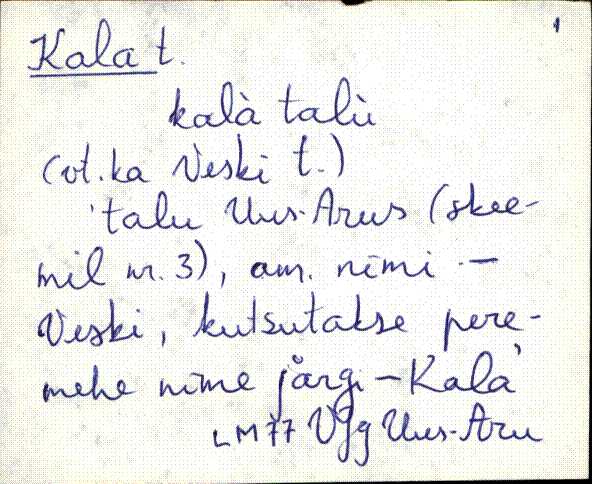 1
Kala t.
kalà talù
(vt. ka Veski t.)
talu Uus-Arus (skee-
mil nr. 3), am. nimi -
Veski, kutsutakse pere-
mehe nime järgi - Kalà
LM 77 VJg Uus-Aru